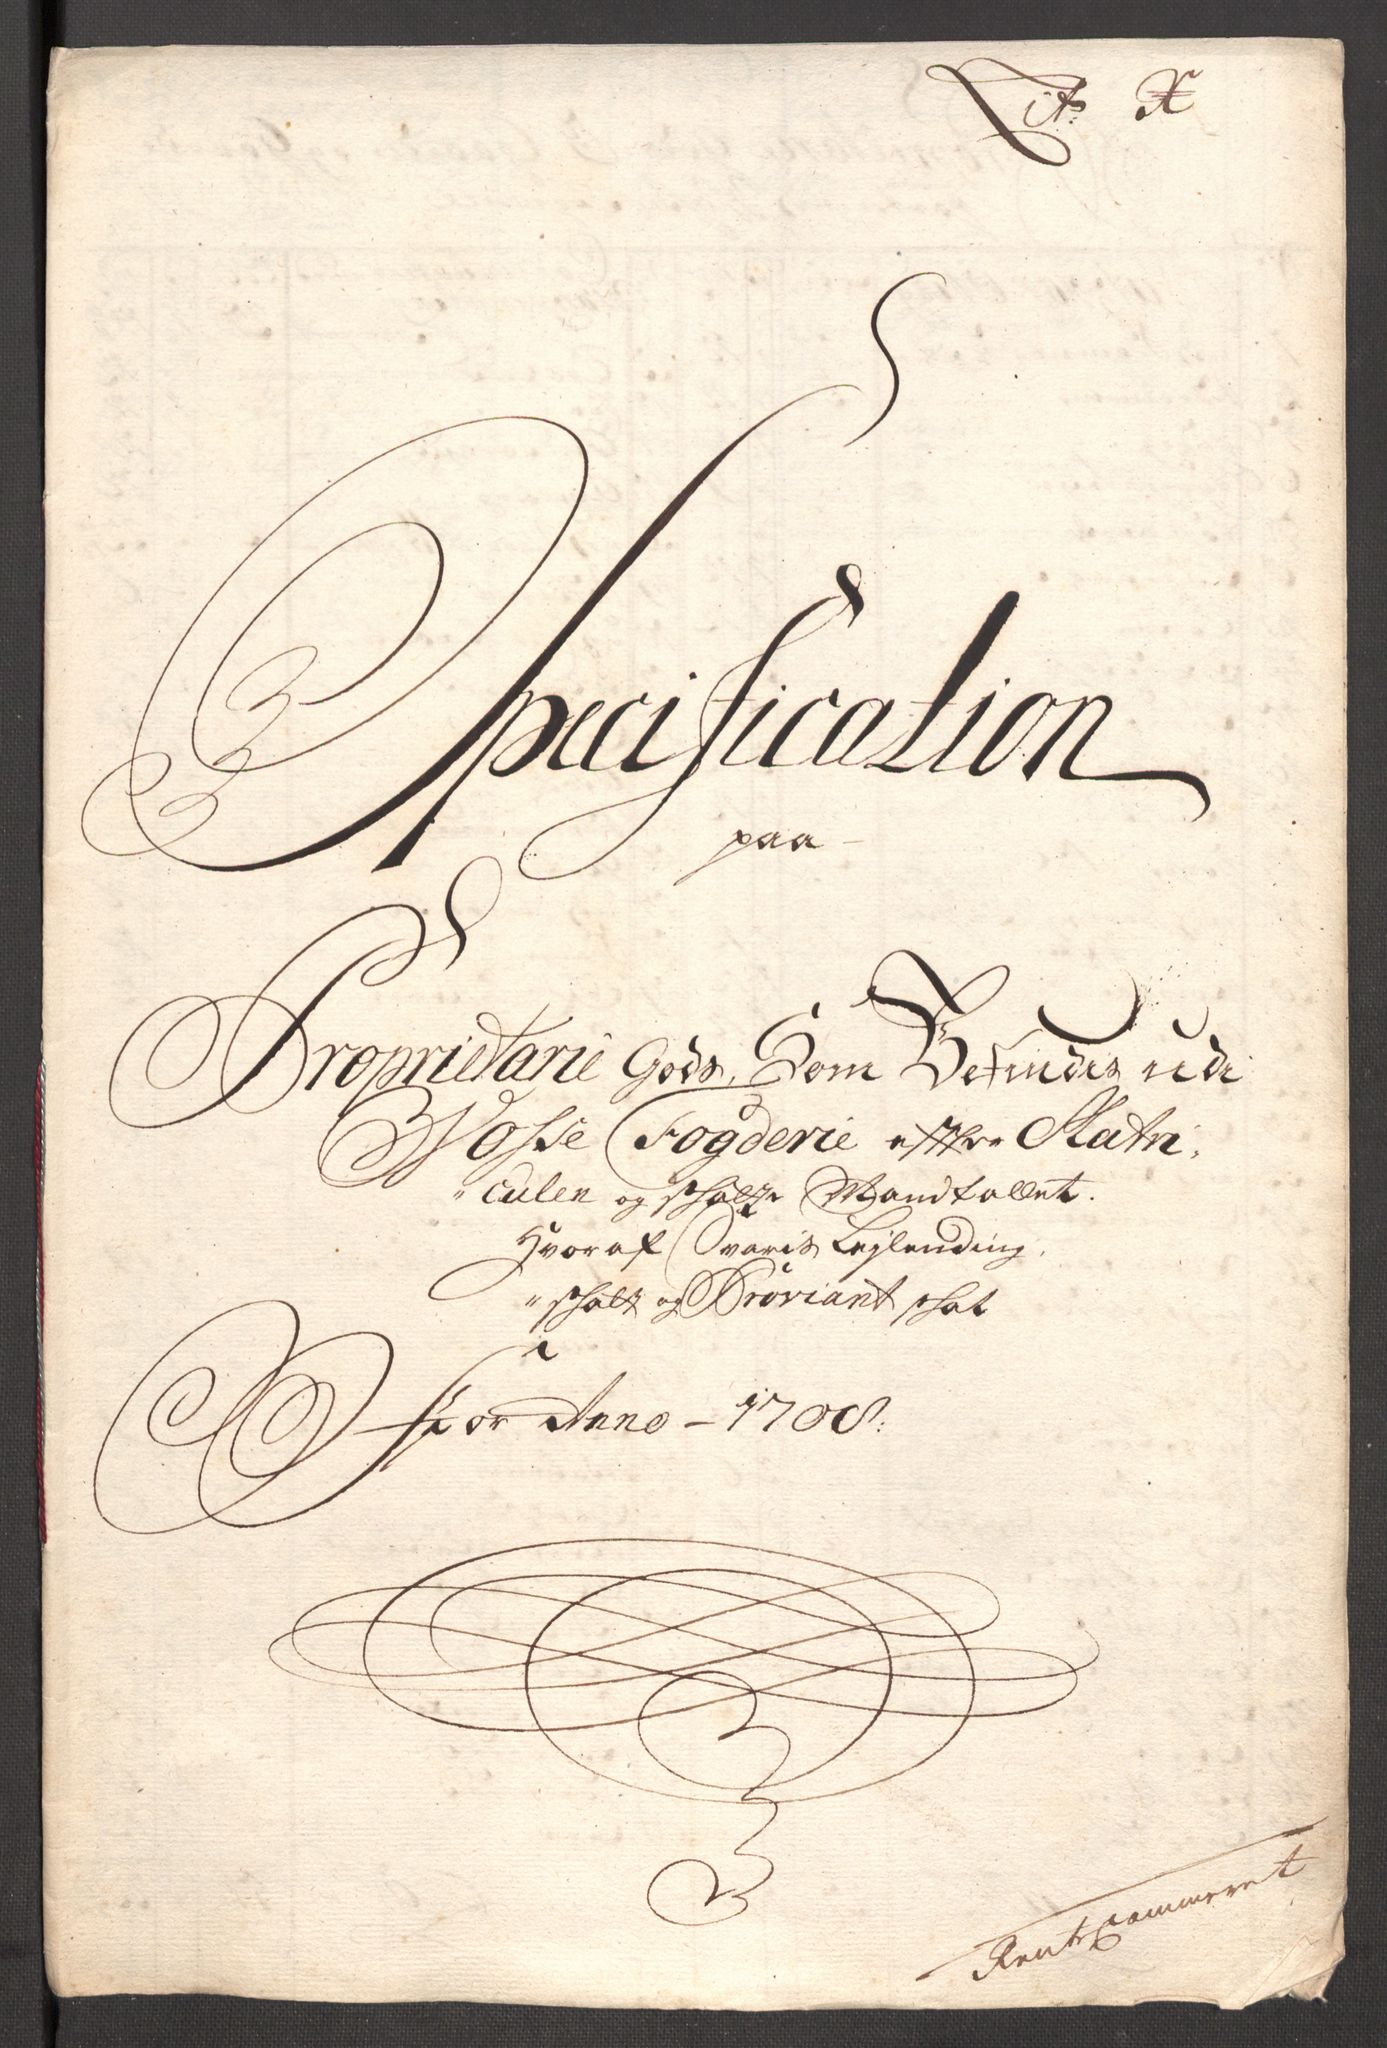 Lit. X
Specification
paa
Proprietarie Gods, Som Befindis udi
Vosse Fogderie effter Matri,
"culen og schatte Mandtallet.
Hvoraf Svaris Lejlending,
"schatt og Proviant schat
For Anno - 1708.
RenteCammeret